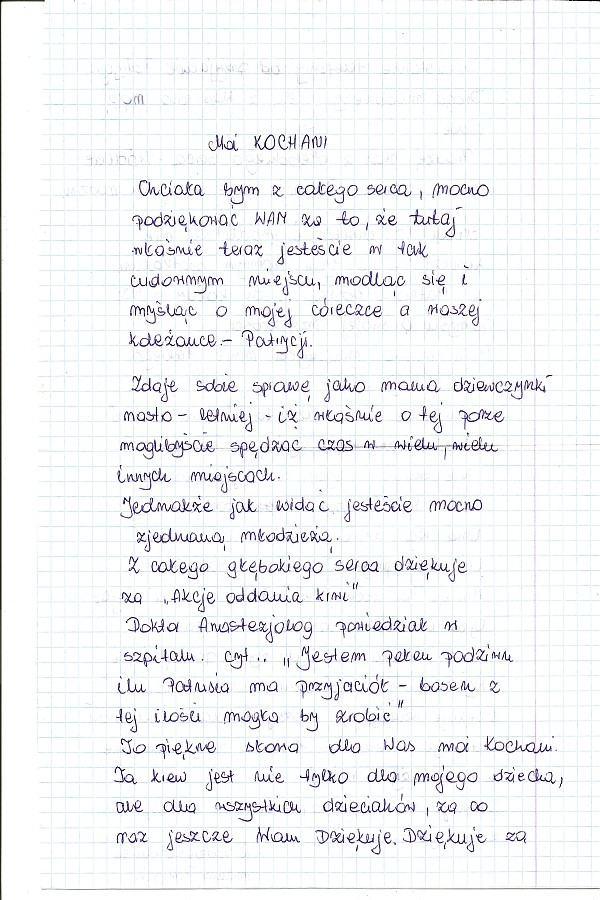 Moi KOCHANI
Chciała bym z całego serca, mocno
podziękować WAM za to, że tutaj
właśnie teraz jesteście w tak
cudownym miejscu, modląc się i
myśląc o mojej córeczce a waszej
koleżance - Patrycji.
Zdaje sobie sprawę jako mama dziewczynki
nasto - letniej - iż właśnie o tej porze
moglibyście spędzać czas w wielu, wielu
innych miejscach.
Jednakże jak widać jesteście mocno
zjednaną młodzieżą.
Z całego głębokiego serca dziękuje
za "Akcje oddania krwi"
Doktor Anestezjolog powiedział w
szpitalu cyt.. "Jestem pełen podziwu
ilu Patrusia ma przyjaciół - basen z
tej ilości mogła by zrobić"
To piękne słowa dla Was moi Kochani.
Ta krew jest nie tylko dla mojego dziecka,
ale dla wszystkich dzieciaków, za co
raz jeszcze Wam Dziękuje. Dziękuje za